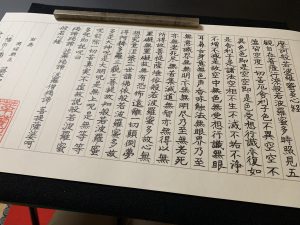 摩訶般若波羅蜜多心経
觀自在菩薩行深般若波羅蜜多時照見五
蘊皆空度一切苦厄舎利子色不異空空不
異色色即是空空即是色受想行識亦復如
是舎利子是諸法空相不生不滅不垢不浄
不增不減是故空中無色無受想行識無眼
耳鼻舌身意無色聲香味觸法無眼界乃至
無意識界無無明亦無無明盡乃至無老死
亦無老死盡無苦集滅道無智亦無得以無
所得故菩提薩埵依般若波羅蜜多故心無
罣礙無罣礙故無有恐怖遠離一切顛倒夢
想究竟涅槃三世諸佛依般若波羅蜜多故
得阿耨多羅三藐三菩提故知般若波羅蜜
多是大神呪是大明呪是無上呪是無等等
呪能除一切苦真實不虚故説般若波羅蜜
多呪即説呪曰
羯諦羯諦波羅羯諦波羅僧羯諦菩提薩婆訶
般若心経